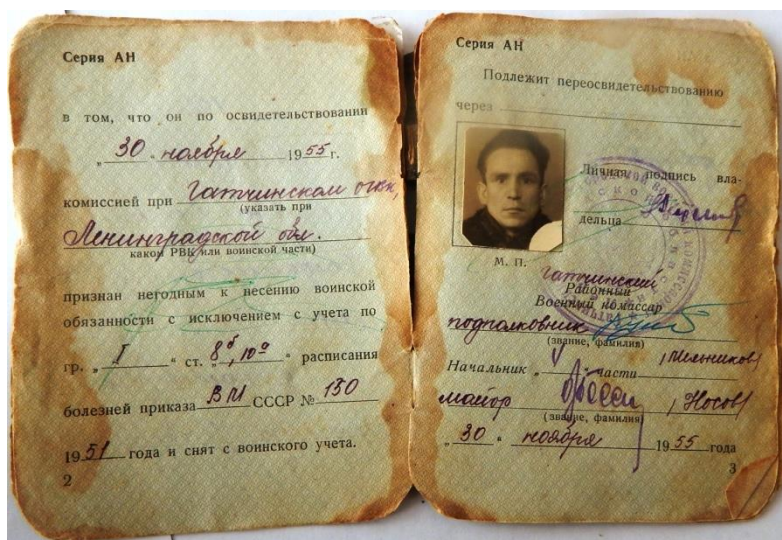 Серия АН
в том, что он по освидетельствовании
„30" ноября 1955 г.
комиссией при Гатчинском огвк,
(указать при
Ленинградской обл.
каком РВК или воинской части)
признан негодным к несению воинской
обязанности с исключением с учета по
гр. „I" ст. 8б, 10а расписания
болезней приказа ВМ СССР № 130
1951 года и снят с воинского учета.
2
Серия АН
Подлежит переосвидетельствованию
через
Личная подпись вла-
дельца
М. П.
Гатчинский
Районный
Военный комиссар
подполковник
(звание, фамилия)
/Мельников/
Начальник „ " части
майор /Носов/
(звание, фамилия)
„30" ноября 1955 года
3